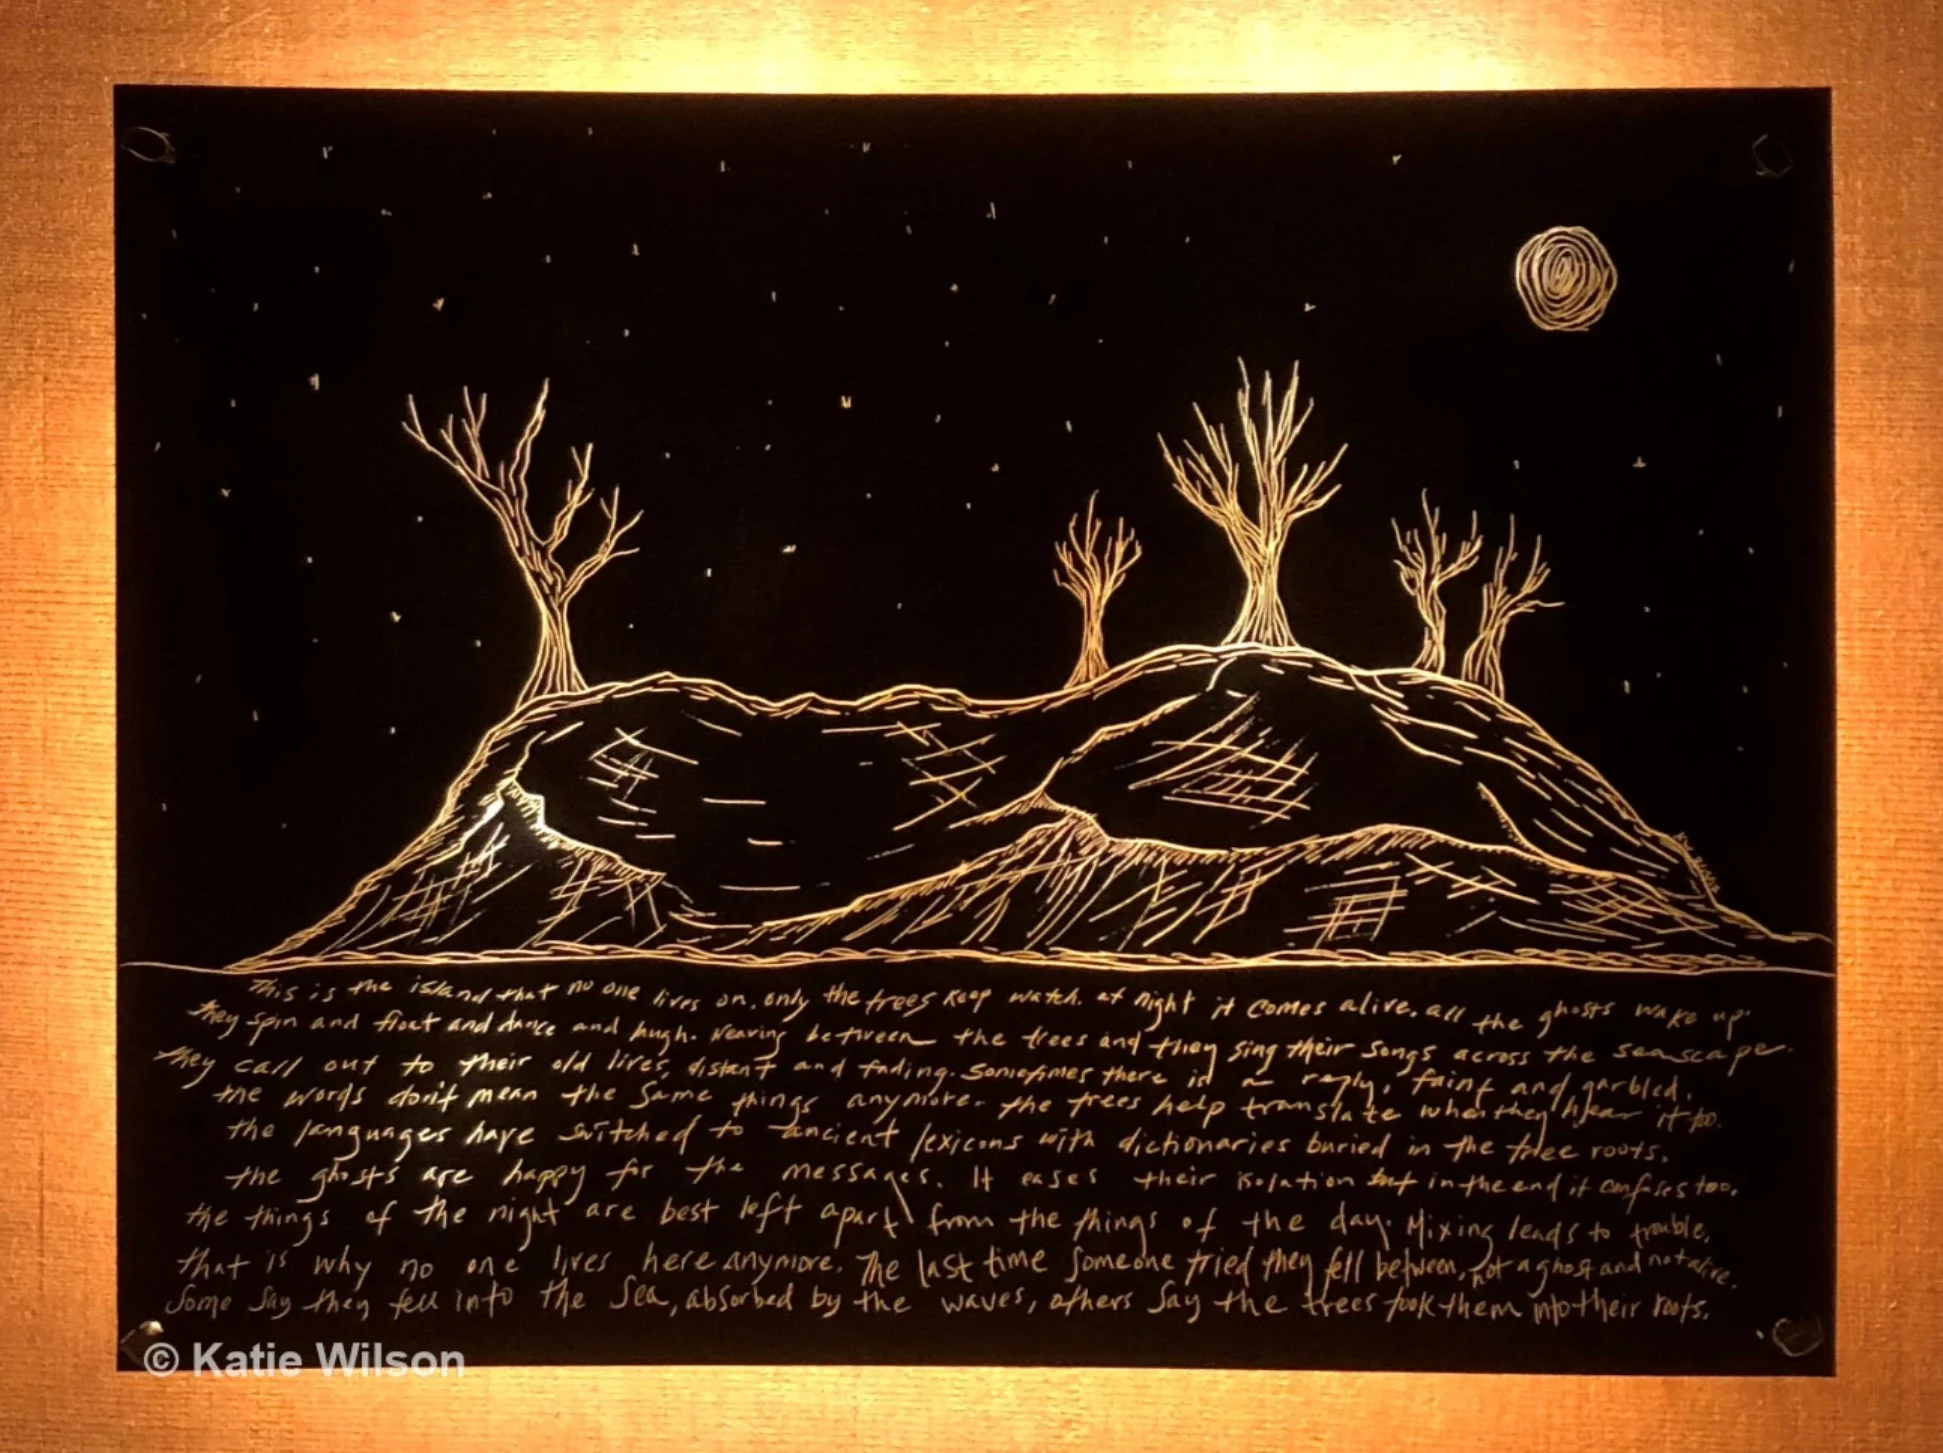 This is the island that no one lives on. only the trees keep watch. at night it comes alive. all the ghosts wake up.
they spin and float and dance and laugh. Weaving between the trees and they sing their songs across the seascape.
they call out to their old lives, distant and fading. sometimes there is a reply, faint and garbled.
the words don't mean the same things anymore. the trees help translate when they hear it too.
the languages have switched to ancient lexicons with dictionaries buried in the tree roots.
the ghosts are happy for the messages. It eases their isolation but in the end it confuses too.
the things of the night are best left apart from the things of the day. Mixing leads to trouble.
that is why no one lives here anymore. The last time someone tried they fell between, not a ghost and not alive.
Some say they fell into the sea, absorbed by the waves, others say the trees took them into their roots.
© Katie Wilson